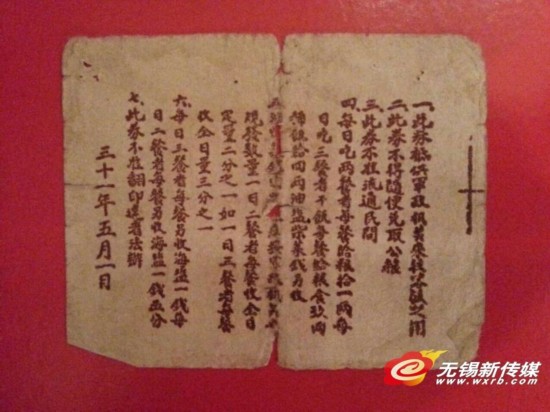 一、此券祗供軍政機夫糧食之用
二、此券不得隨便兌取公糧
三、此券不准流通民間
四、每日吃两餐者每餐給粮拾一两每
日吃三餐者干飯每餐給粮食玖两
稀飯拾四两油盐柴菜錢另收
五
現發数量一日二餐者每餐收全日
定量二分之一如一日三餐者每餐
收全日量三分之一
六、每日三餐者每餐另收海盐一錢每
日二餐者每餐另收海盐一錢五分
七、此券不准翻印違者法辦
三十一年五月一日
无锡新传媒
www.wxrb.com